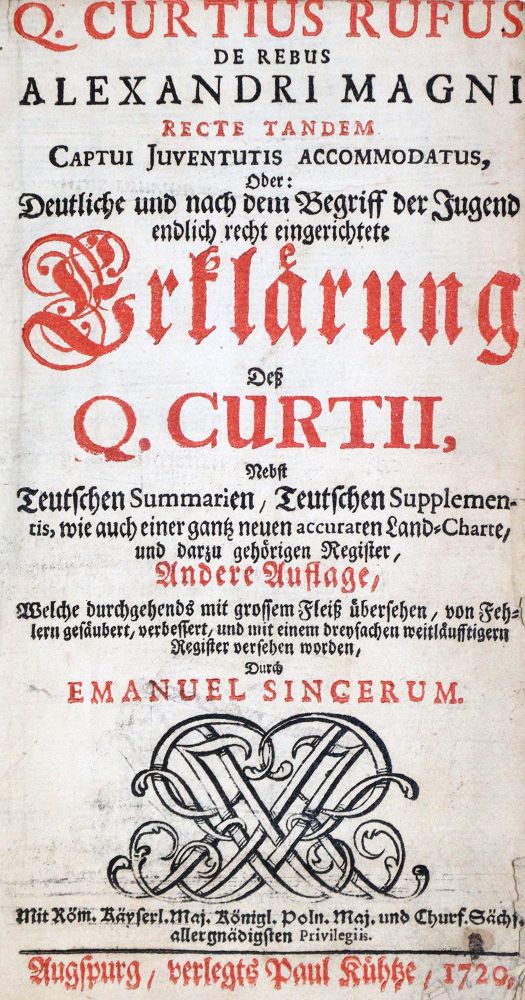 Q. CURTIUS RUFUS
DE REBUS
ALEXANDRI MAGNI
RECTE TANDEM
CAPTUI JUVENTUTIS ACCOMMODATUS,
Oder:
Deutliche und nach dem Begriff der Jugend
endlich recht eingerichtete
Erklaͤrung
Deß
Q. CURTII,
Nebst
Teutschen Summarien, Teutschen Supplemen-
tis, wie auch einer gantz neuen accuraten Land-Charte,
und darzu gehörigen Register,
Andere Auflage,
Welche durchgehends mit grossem Fleiß übersehen, von Feh-
lern gesäubert, verbessert, und mit einem dreyfachen weitläufftigern
Register versehen worden,
Durch
EMANUEL SINCERUM.
Mit Röm. Käyserl. Maj. Königl. Poln. Maj. und Churf. Sächs.
allergnädigsten Privilegiis.
Augspurg, verlegts Paul Kühtze, 1720.